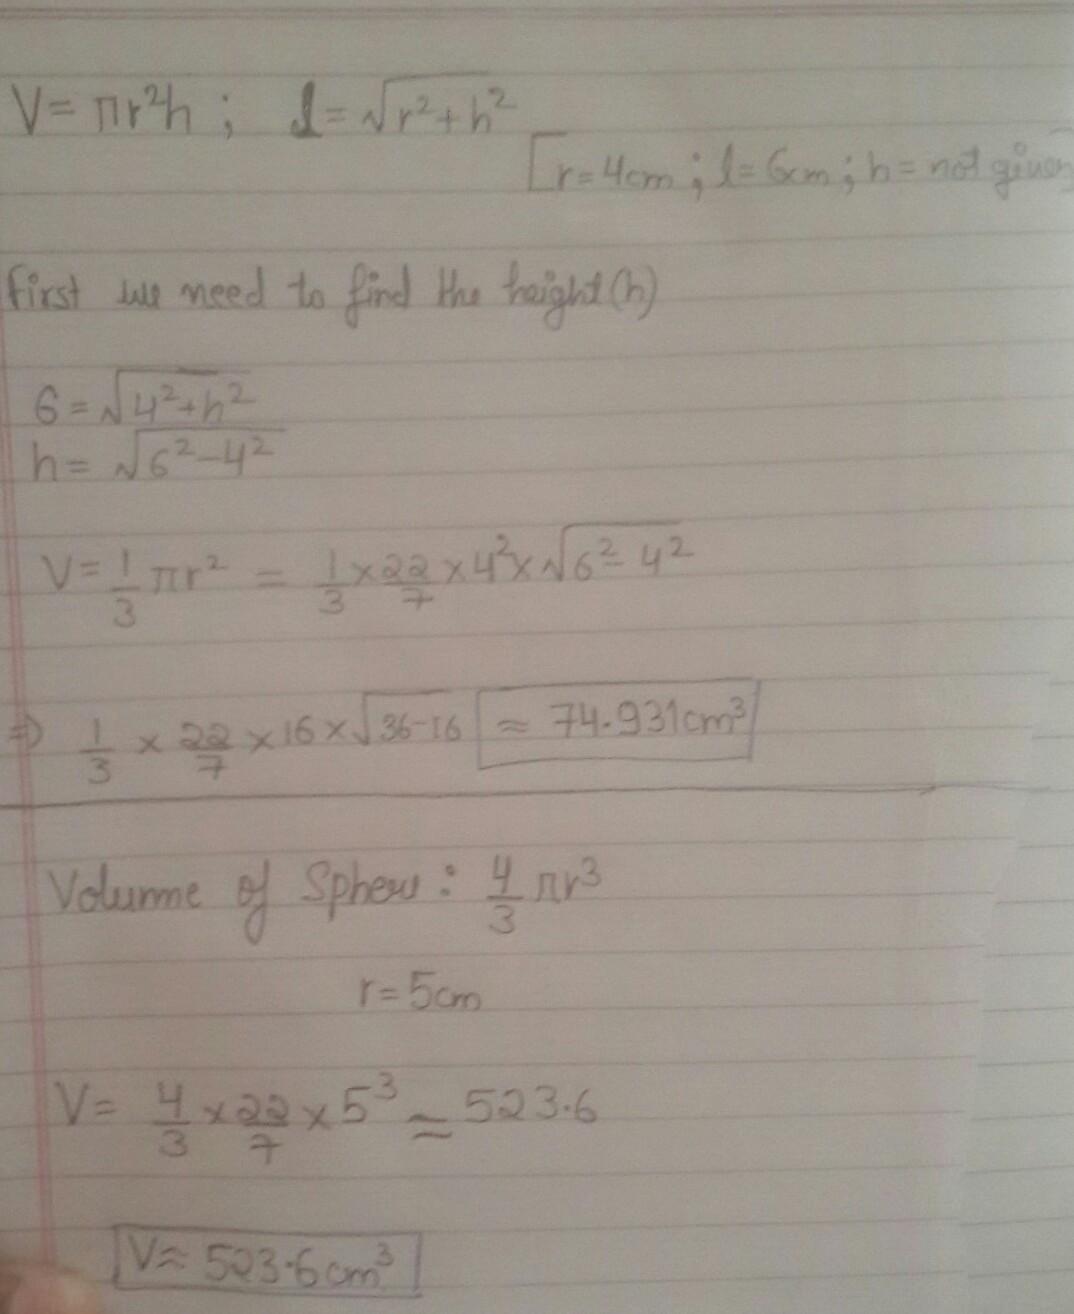 V = πr²h ; l = √r²+h²
[r = 4cm ; l = 6cm ; h = not given
first we need to find the height (h)
6 = √4²+h²
h = √6²-4²
V = 1/3 πr² = 1/3 × 22/7 × 4² × √6²-4²
⇒ 1/3 × 22/7 × 16 × √36-16 ≈ 74.931cm³
Volume of Sphere : 4/3 πr³
r = 5cm
V = 4/3 × 22/7 × 5³ ≃ 523.6
V ≈ 523.6 cm³